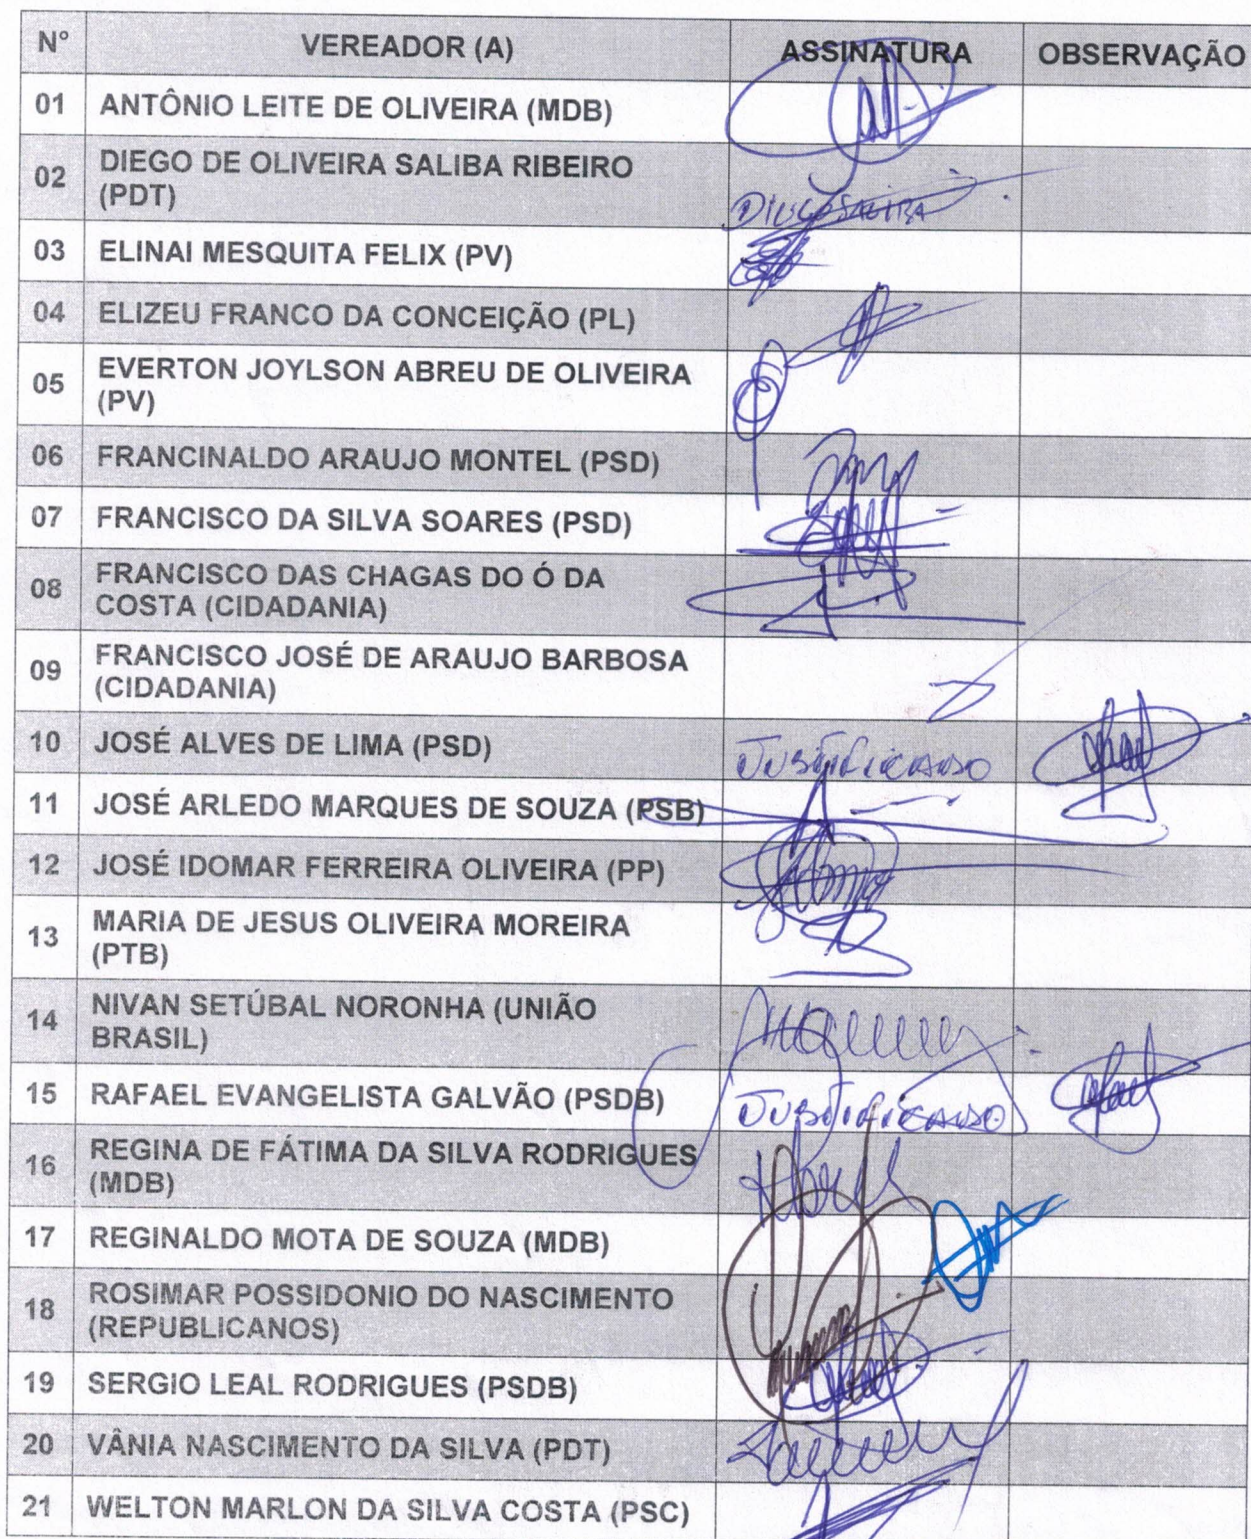 N° VEREADOR (A) ASSINATURA OBSERVAÇÃO
01 ANTÔNIO LEITE DE OLIVEIRA (MDB)
02 DIEGO DE OLIVEIRA SALIBA RIBEIRO
(PDT)
DIEGO SALIBA
03 ELINAI MESQUITA FELIX (PV)
04 ELIZEU FRANCO DA CONCEIÇÃO (PL)
05 EVERTON JOYLSON ABREU DE OLIVEIRA
(PV)
06 FRANCINALDO ARAUJO MONTEL (PSD)
07 FRANCISCO DA SILVA SOARES (PSD)
08 FRANCISCO DAS CHAGAS DO Ó DA
COSTA (CIDADANIA)
09 FRANCISCO JOSÉ DE ARAUJO BARBOSA
(CIDADANIA)
10 JOSÉ ALVES DE LIMA (PSD) JUSTIFICADO
11 JOSÉ ARLEDO MARQUES DE SOUZA (PSB)
12 JOSÉ IDOMAR FERREIRA OLIVEIRA (PP)
13 MARIA DE JESUS OLIVEIRA MOREIRA
(PTB)
14 NIVAN SETÚBAL NORONHA (UNIÃO
BRASIL)
15 RAFAEL EVANGELISTA GALVÃO (PSDB) JUSTIFICADO
16 REGINA DE FÁTIMA DA SILVA RODRIGUES
(MDB)
17 REGINALDO MOTA DE SOUZA (MDB)
18 ROSIMAR POSSIDONIO DO NASCIMENTO
(REPUBLICANOS)
19 SERGIO LEAL RODRIGUES (PSDB)
20 VÂNIA NASCIMENTO DA SILVA (PDT)
21 WELTON MARLON DA SILVA COSTA (PSC)